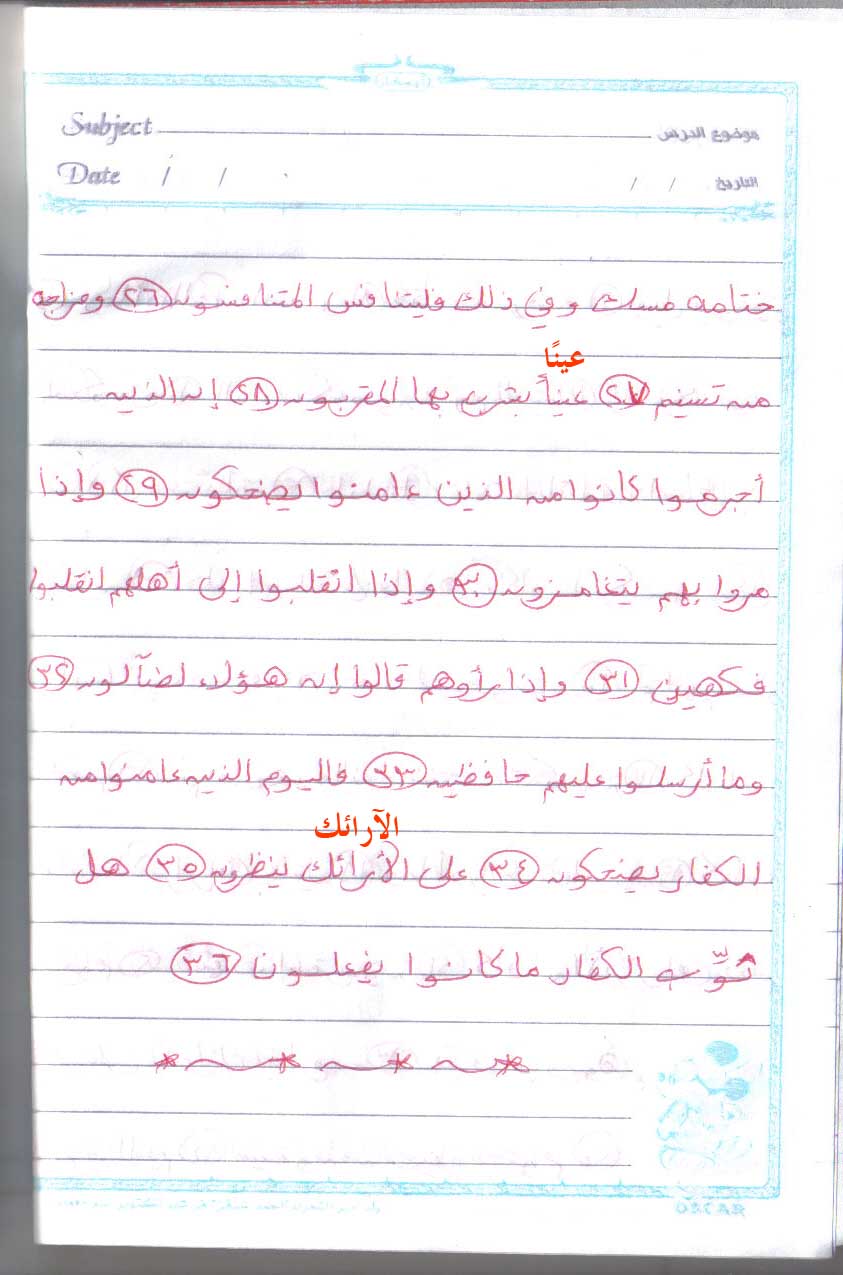 Subject موضوع الدرس
Date / / التاريخ / /
ختامه مسك وفي ذلك فليتنافس المتنافسون (٢٦) ومزاجه
عينًا
من تسنيم (٢٧) عيناً يشرب بها المقربون (٢٨) إن الذين
أجرموا كانوا من الذين ءامنوا يضحكون (٢٩) وإذا
مروا بهم يتغامزون (٣٠) وإذا انقلبوا إلى أهلهم انقلبوا
فكهين (٣١) وإذا رأوهم قالوا إن هؤلاء لضآلون (٣٢)
وما أرسلوا عليهم حافظين (٣٣) فاليوم الذين ءامنوا من
الآرائك
الكفار يضحكون (٣٤) على الأرائك ينظرون (٣٥) هل
ثوّب الكفار ما كانوا يفعلون (٣٦)